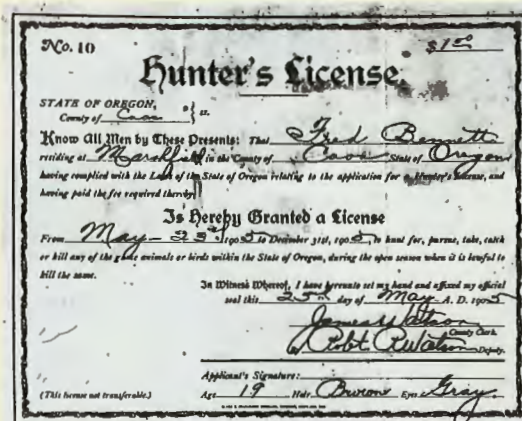 No. 10 $1.00
Hunter's License.
STATE OF OREGON,
County of Coos } ss.
Know All Men by These Presents: That Fred Bennett
residing at Marshfield in the County of Coos State of Oregon
having complied with the Laws of the State of Oregon relating to the application for a Hunter's License, and
having paid the fee required thereby,
Is Hereby Granted a License
From May 25th 1905 to December 31st, 1905, to hunt for, pursue, take, catch
or kill any of the game animals or birds within the State of Oregon, during the open season when it is lawful to
kill the same.
In Witness Whereof, I have hereunto set my hand and affixed my official
seal this 25th day of May A. D. 1905
James Watson
County Clerk.
Robt R Watson Deputy.
Applicant's Signature:
(This license not transferable.) Age 19 Hair Brown Eyes Gray